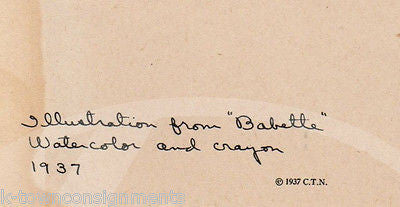 Illustration from "Babette"
Watercolor and crayon
1937
© 1937 C.T.N.
k-townconsignments